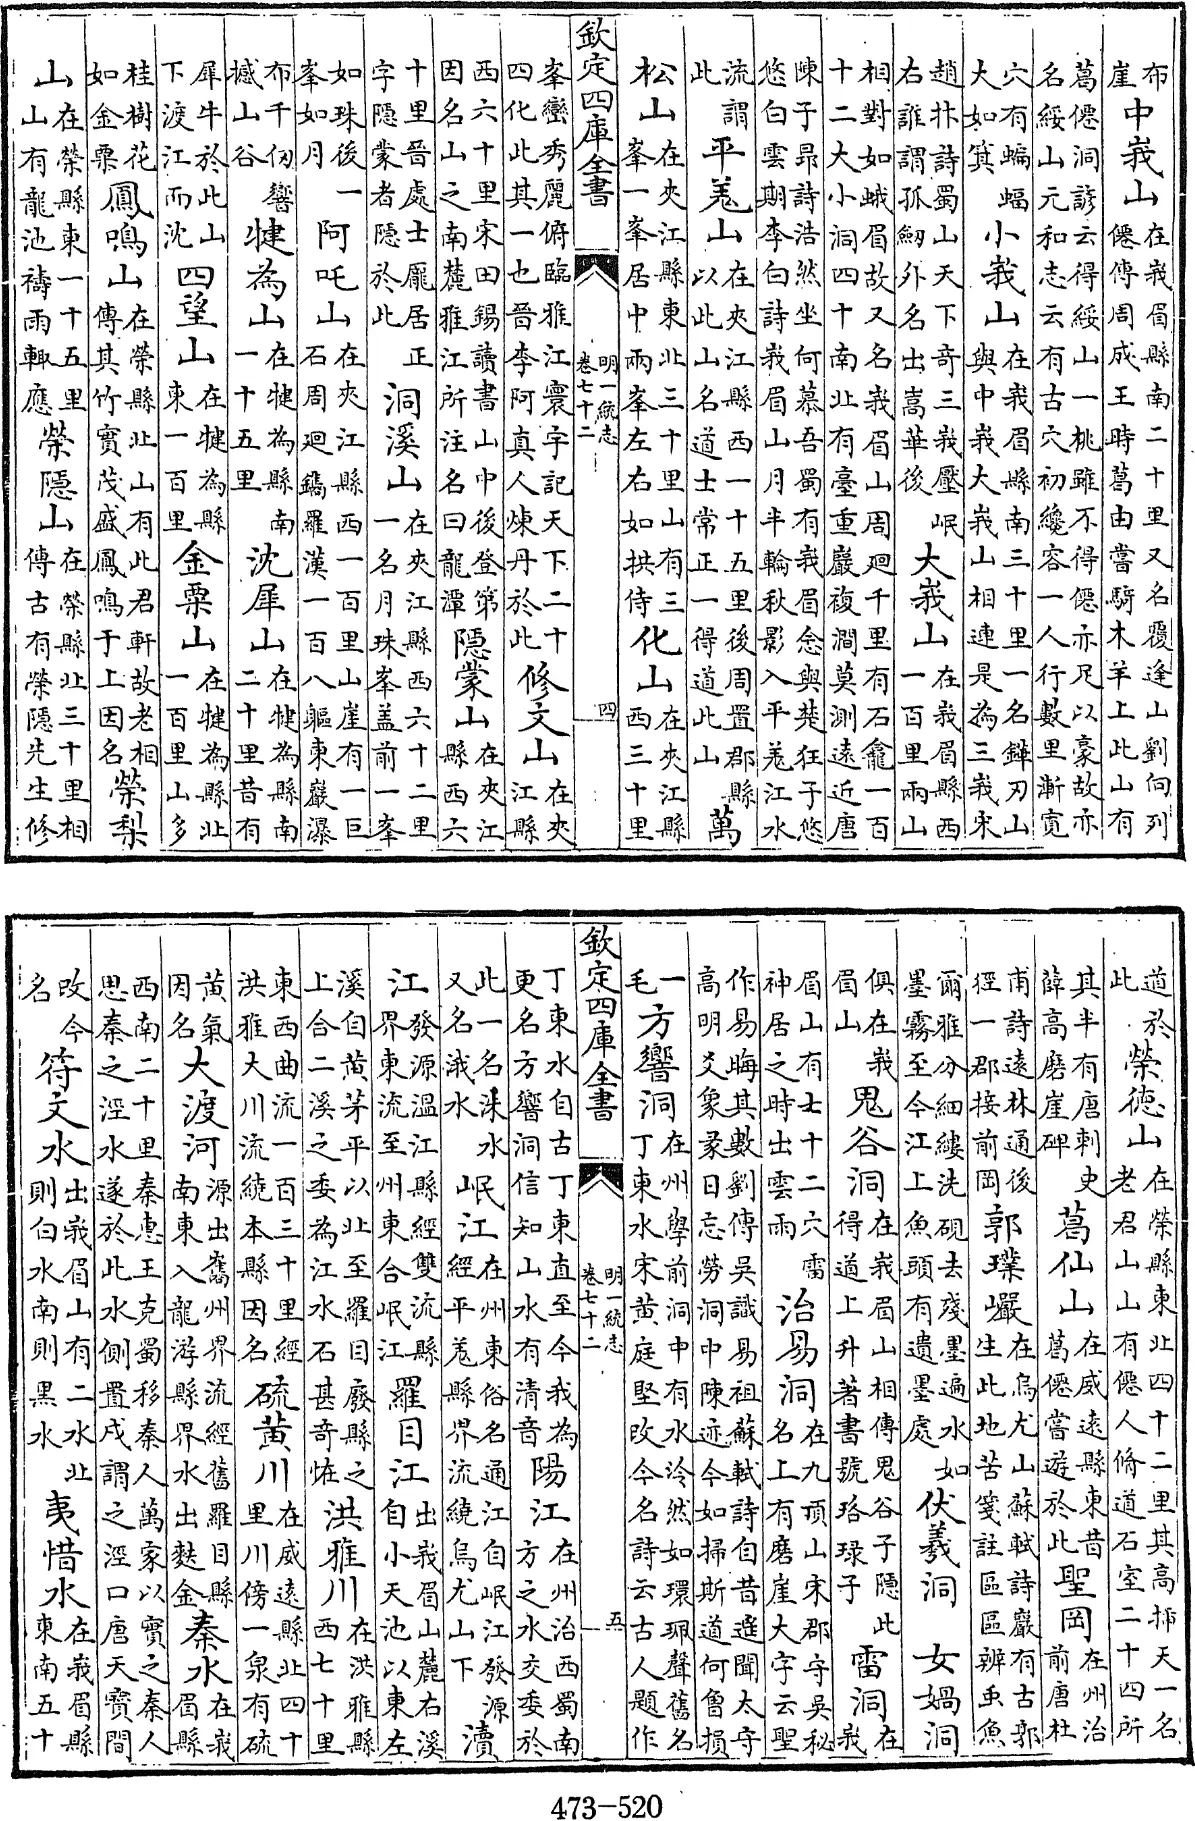 布崖中峩山在峩眉縣南二十里又名覆逢山劉向列僊傳周成王時葛由嘗騎木羊上此山有
葛僊洞諺云得綏山一桃雖不得僊亦足以豪故亦名綏山元和志云有古穴初纔容一人行數里漸寛
穴有蝙蝠大如箕小峩山在峩眉縣南三十里一名鏵刃山與中峩大峩山相連是為三峩宋
趙抃詩蜀山天下奇三峩壓岷右誰謂孤劒外名出嵩華後大峩山在峩眉縣西一百里兩山
相對如蛾眉故又名峩眉山周廻千里有石龕一百十二大小洞四十南北有臺重巖複澗莫測遠近唐
陳子昂詩浩然坐何慕吾蜀有峩眉念與楚狂子悠悠白雲期李白詩峩眉山月半輪秋影入平羗江水
流謂此平羗山在夾江縣西一十五里後周置郡縣以此山名道士常正一得道此山萬
松山在夾江縣東北三十里山有三峯一峯居中兩峯左右如拱侍化山在夾江縣西三十里
欽定四庫全書 明一統志 卷七十二 四
峯巒秀麗俯臨雅江寰宇記天下二十四化此其一也晉李阿真人煉丹於此修文山在夾江縣
西六十里宋田錫讀書山中後登第因名山之南麓雅江所注名曰龍潭隠蒙山在夾江縣西六
十里晉處士龎居正字隠蒙者隠於此洞溪山在夾江縣西六十二里一名月珠峯盖前一峯
如珠後一峯如月阿吒山在夾江縣西一百里山崖有一巨石周廻鐫羅漢一百八軀東巖瀑
布千仞響撼山谷犍為山在犍為縣南一十五里沈犀山在犍為縣南二十里昔有
犀牛於此山下渡江而沈四望山在犍為縣東一百里金粟山在犍為縣北一百里山多
桂樹花如金粟鳳鳴山在榮縣北山有此君軒故老相傳其竹實茂盛鳳鳴于上因名榮梨
山在榮縣東一十五里山有龍池禱雨輙應榮隠山在榮縣北三十里相傳古有榮隠先生修
道於此榮德山在榮縣東北四十二里其高揷天一名老君山山有僊人脩道石室二十四所
其半有唐刺史薛高磨崖碑葛仙山在威遠縣東昔葛僊嘗遊於此聖岡在州治前唐杜
甫詩遠林通後徑一郡接前岡郭璞巖在烏尤山蘇軾詩巖有古郭生此地苦箋註區區辨䖝魚
爾雅分細縷洗硯去殘墨遍水如墨霧至今江上魚頭有遺墨處伏羲洞 女媧洞
俱在峩眉山鬼谷洞在峩眉山相傳鬼谷子隠此得道上升著書號珞琭子雷洞在峩
眉山有七十二穴雷神居之時出雲雨治易洞在九頂山宋郡守吳秘名上有磨崖大字云聖
作易晦其數劉傳吳識易祖蘇軾詩自昔遥聞太守高明爻象彖日忘勞洞中陳迹今如掃斯道何曾損
一毛方響洞在州學前洞中有水泠然如環珮聲舊名丁東水宋黄庭堅改今名詩云古人題作
欽定四庫全書 明一統志 卷七十二 五
丁東水自古丁東直至今我為更名方響洞信知山水有清音陽江在州治西蜀南方之水交委於
此一名沬水又名涐水岷江在州東俗名通江自岷江發源經平羗縣界流繞烏尤山下瀆
江發源溫江縣經雙流縣界東流至州東合岷江羅目江出峩眉山麓右溪自小天池以東左
溪自黄茅平以北至羅目廢縣之上合二溪之委為江水石甚奇恠洪雅川在洪雅縣西七十里
東西曲流一百三十里經洪雅大川流繞本縣因名硫黄川在威遠縣北四十里川傍一泉有硫
黄氣因名大渡河源出雟州界流經舊羅目縣南東入龍游縣界水出麩金秦水在峩眉縣
西南二十里秦惠王克蜀移秦人萬家以實之秦人思秦之涇水遂於此水側置戍謂之涇口唐天寶間
改今名符文水出峩眉山有二水北則白水南則黑水夷惜水在峩眉縣東南五十
473-520